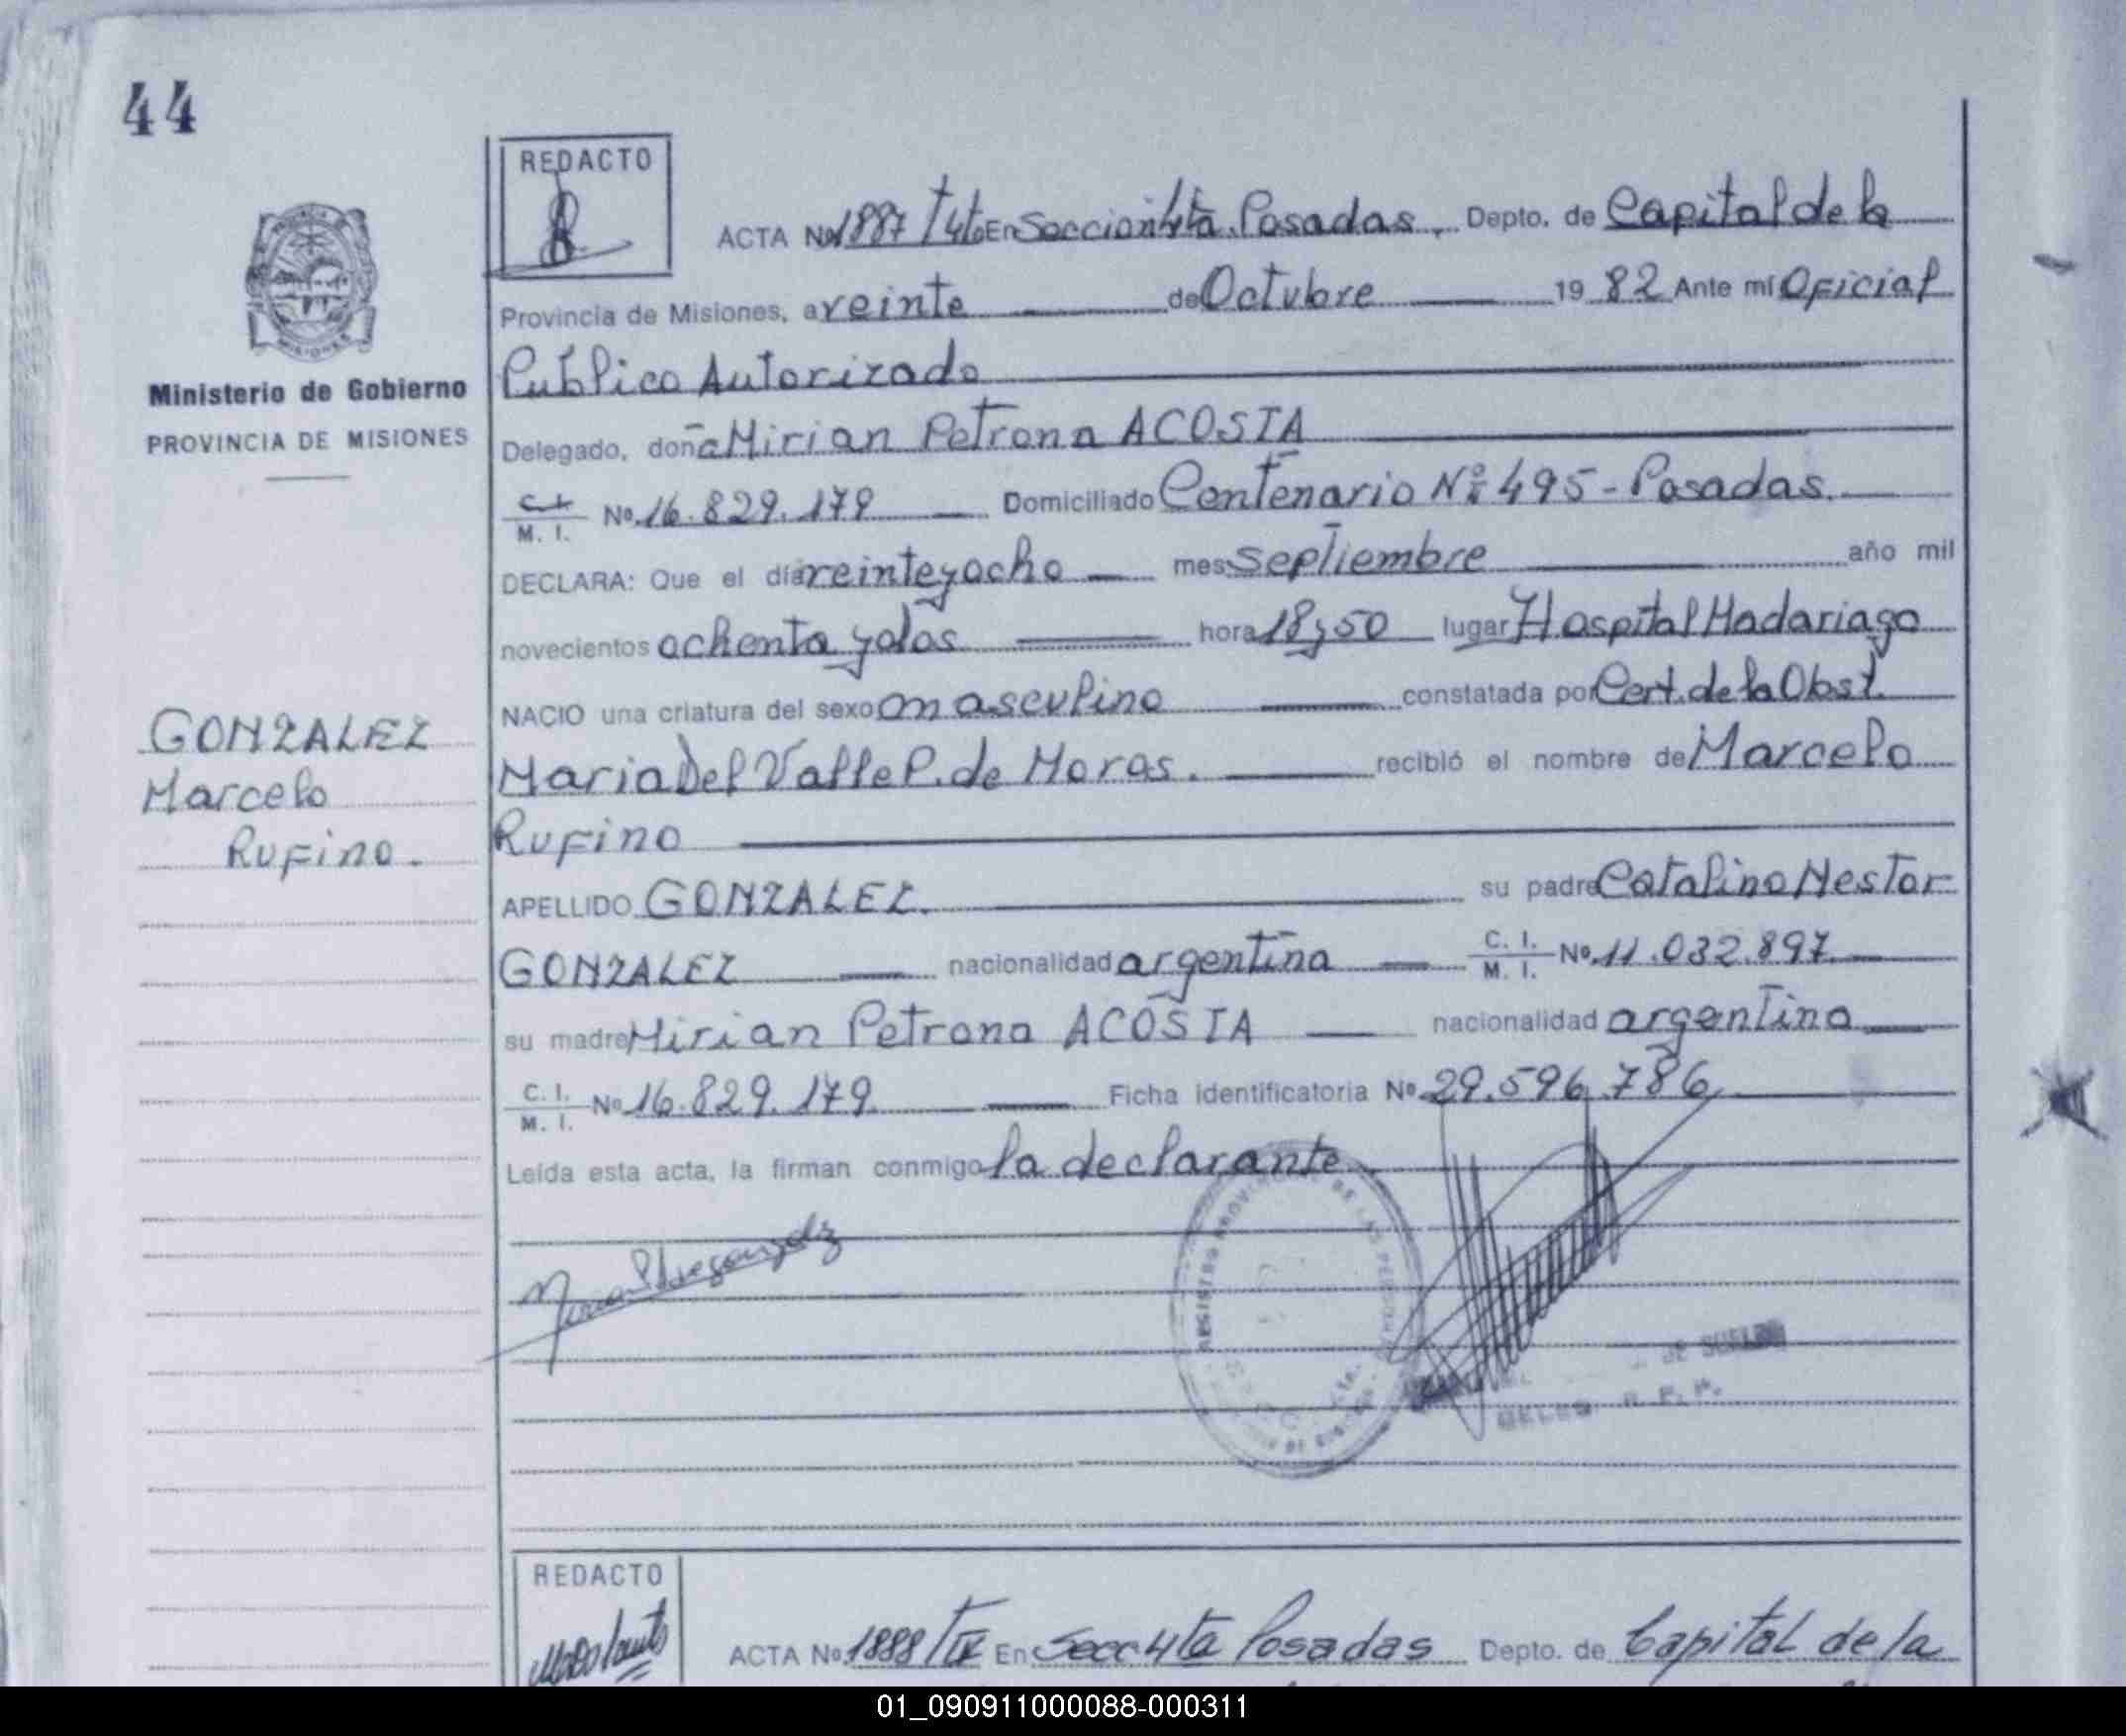 44
REDACTO
ACTA No 1887 T 4to En Seccion 4ta. Posadas. Depto. de Capital de la
Provincia de Misiones, a veinte de Octubre 19 82 Ante mí Oficial
Publico Autorizado
Ministerio de Gobierno
PROVINCIA DE MISIONES
Delegado, doña Mirian Petrona ACOSTA
C. I. M. I. No. 16.829.179 Domiciliado Centenario Nº 495 - Posadas.
DECLARA: Que el día veinteyocho mes septiembre año mil
novecientos ochenta y dos hora 18y50 lugar Hospital Madariaga
NACIO una criatura del sexo masculino constatada por Cert. de la Obst.
Maria Del Valle P. de Moras. recibió el nombre de Marcelo
Rufino
GONZALEZ
Marcelo
Rufino.
APELLIDO GONZALEZ. su padre Catalino Nestor
GONZALEZ nacionalidad argentina C. I. M. I. No. 11.032.897
su madre Mirian Petrona ACOSTA nacionalidad argentina
C. I. M. I. No 16.829.179 Ficha identificatoria No 29.596.786
Leída esta acta, la firman conmigo la declarante.
REGISTRO PROVINCIAL DE LAS PERSONAS
REDACTO
ACTA No. 1888/IV En Secc 4ta Posadas Depto. de Capital de la
01_090911000088-000311